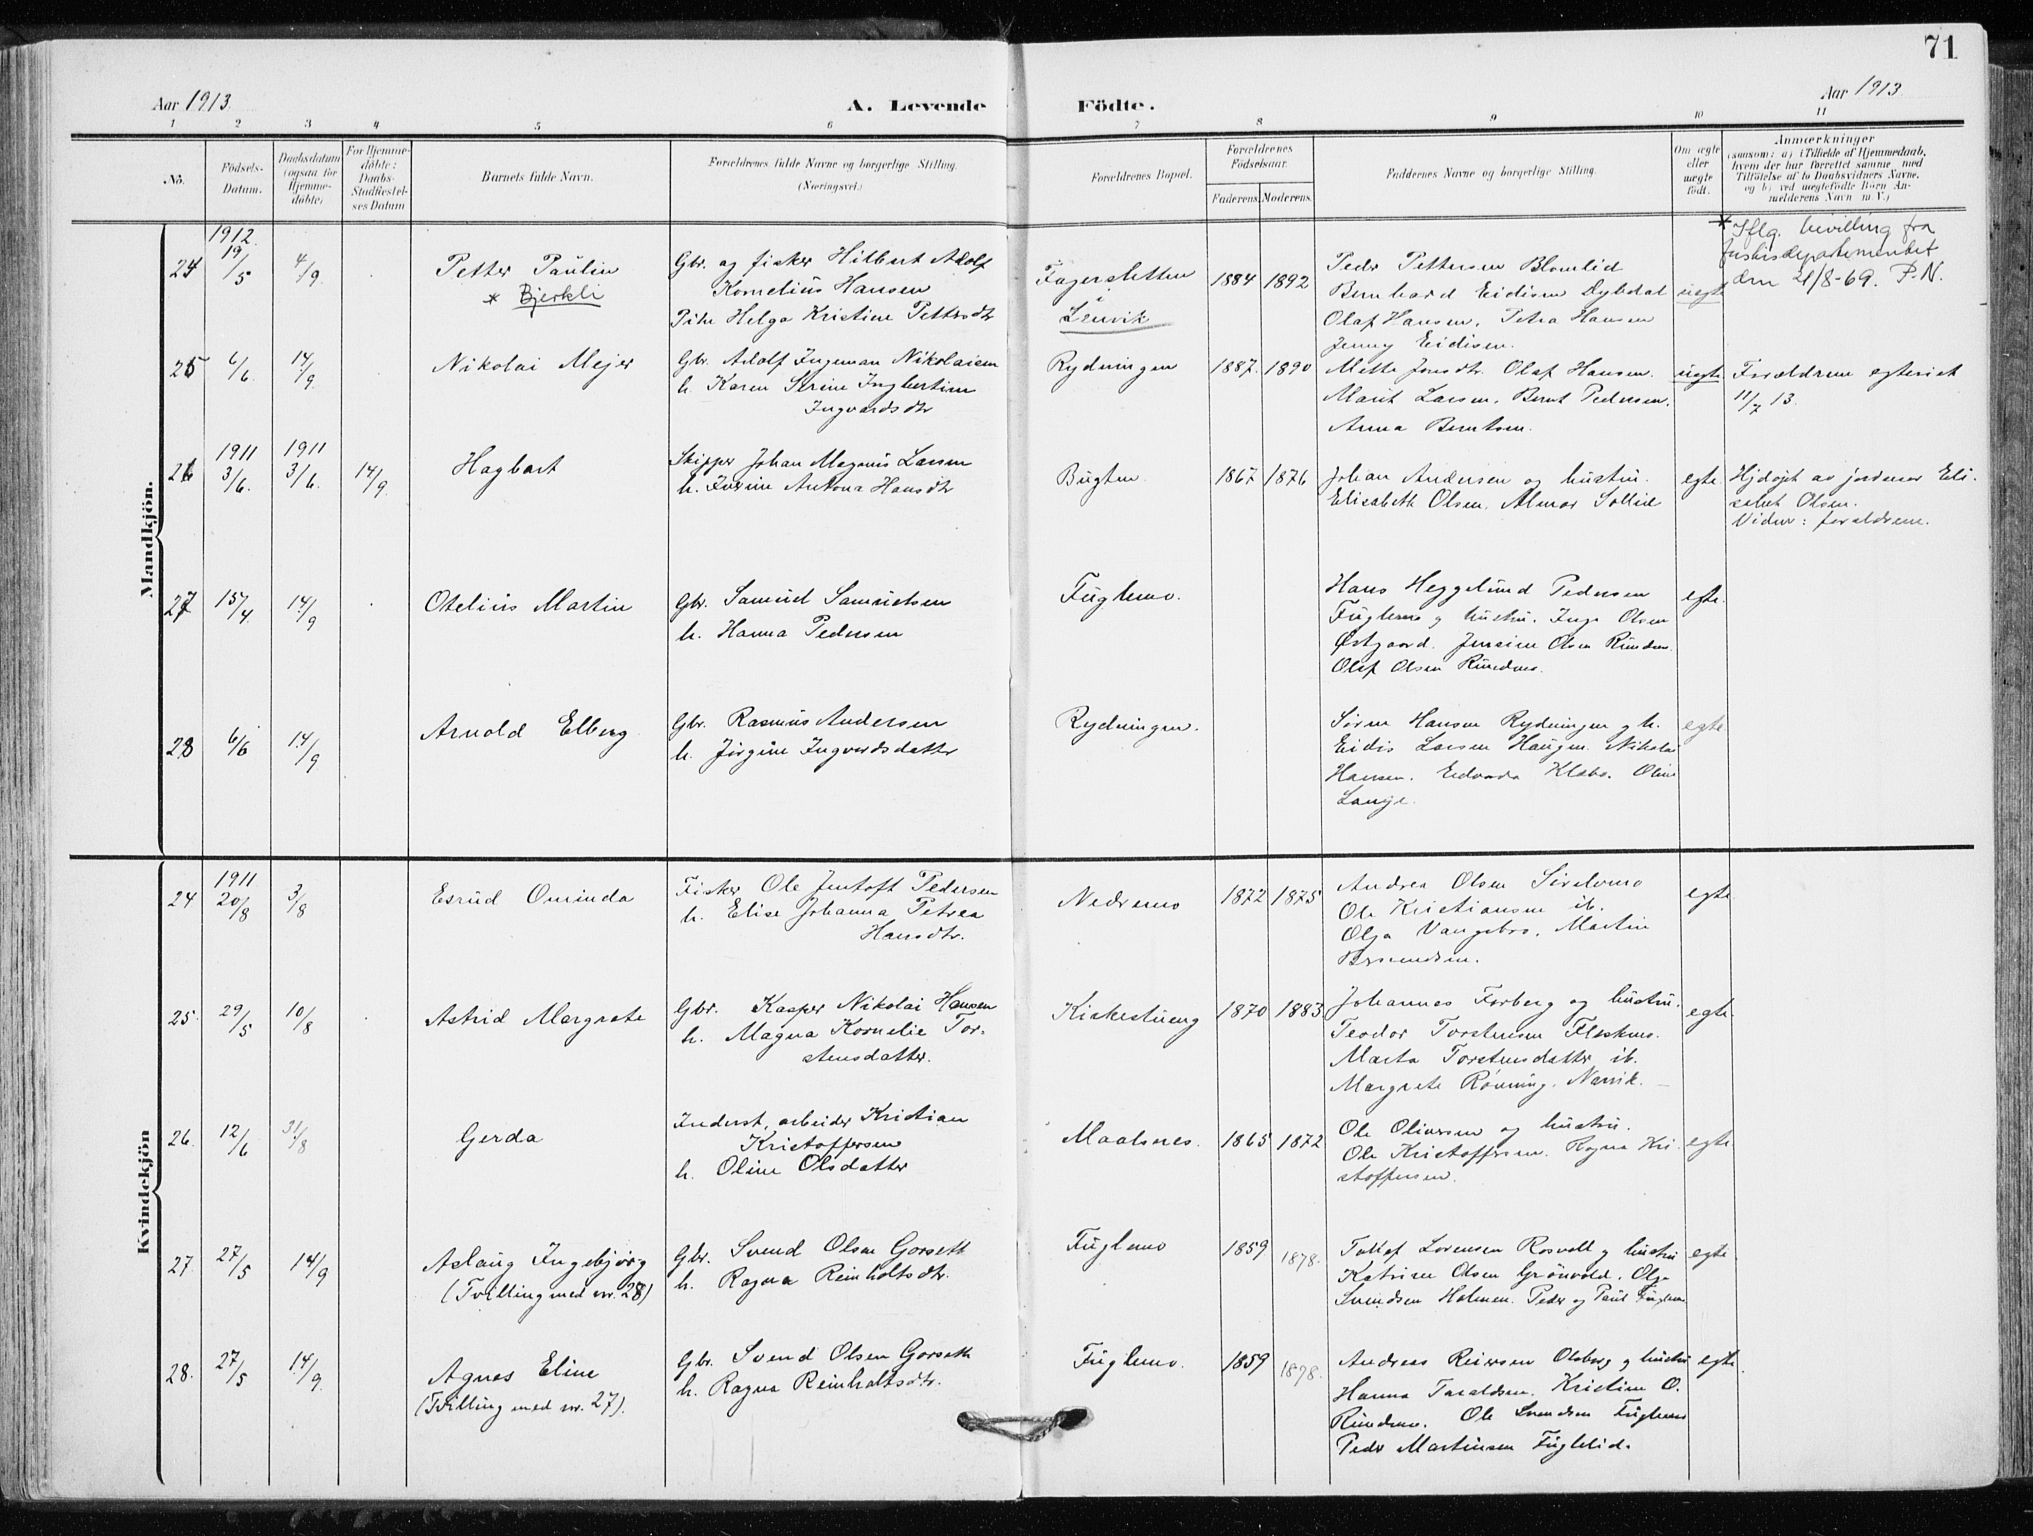 71
Aar 1913.
A. Levende Födte.
Aar 1913
1 2 3 4 5 6 7 8 9 10 11
No.
Födsels-
Datum.
Daabsdatum
(ogsaa for
Hjemme-
döbte)
For Hjemme-
döbte:
Daabs-
Stadfæstel-
ses Datum
Barnets fulde Navn.
Forældrenes fulde Navne og borgerlige Stilling.
(Næringsvei.)
Forældrenes Bopæl.
Forældrenes
Födselsaar.
Faderens. Moderens.
Faddernes Navne og borgerlige Stilling.
Om ægte
eller
uægte
födt.
Anmærkninger
(saasom: a) i Tilfælde af Hjemmedaab,
hvem der har forrettet samme, med
Tilföielse af to Daabsvidners Navne,
og b) ved uægtefödte Börn An-
melderens Navn m. V.)
Mandkjön.
24 1912 19/5 4/9 Petter Paulin
* Bjerkli
Gbr. og fisker Hilbert Adolf
Kornelius Hansen
Pike Helga Kristine Pettersdtr
Fagersletten
i
Lenvik
1884 1892
Peder Pettersen Blomlid
Bernhard Eidisen Dybdal
Olaf Hansen, Petra Hansen
Jenny Eidisen.
uegte
* Iflg. bevilling fra
justisdepartementet
den 21/8-69. P.N.
25 6/6. 14/9 Nikolai Mejer
Gbr. Adolf Ingeman Nikolaisen
h. Karen Serine Ingbertine
Ingvardsdtr
Rydningen 1887. 1890
Mette Jonsdtr. Olaf Hansen.
Marit Larsen, Bernt Pedersen.
Anna Berntsen.
uegte
Forældrene egteviet
11/7 13.
26 1911 3/6. 1911 3/6. 14/9. Hagbart
Skipper Johan Magnus Larsen
h. Iverine Antona Hansdtr
Bugten 1867 1876
Johan Andersen og hustru.
Elisabeth Olsen, Almar Sollid
egte
Hjdøpt av jordmor Eli-
sabet Olsen.
Vidner: foreldrene.
27 15/4 14/9 Otelius Martin
Gbr. Samuel Samuelsen
h. Hanna Pedersen
Fuglemo.
Hans Heggelund Pedersen
Fuglemo g hustru. Inga Olsen
Østgaard. Jensine Olsen Rundmo.
Olaf Olsen Rundmo.
egte.
28 6/6 14/9 Arnold Elberg
Gbr. Rasmus Andersen
h. Jørgine Ingvardsdatter
Rydningen.
Søren Hansen Rydningen g h.
Eidis Larsen Haugen. Nikolai
Hansen. Edvarda Klæbo. Oline
Lange.
egte.
Kvindekjön
24 1911 20/8 3/8 Esrud Ominda
Fisker Ole Jentoft Pedersen
h. Elise Johanna Petrea
Hansdtr.
Nedremo 1872 1875
Andrea Olsen
Ole Kristiansen ib.
Olga Vangsbro, Martin
egte
25. 29/5 10/8 Astrid Margrete
Gbr. Kasper Nikolai Hansen
h. Magna Kornelie Tor-
stensdatter.
Kirkestueng 1870 1883
Johannes Forberg og hustru.
Teodor Torstensen Fleskmo.
Marta Torstensdatter ib.
Margrete Rönning, Narvik. —
egte.
26. 12/6 31/8 Gerda
Inderst, arbeider Kristian
Kristoffersen
h. Oline Olsdatter
Maalsnes. 1865 1872
Ole Oliversen og hustru.
Ole Kristoffersen. Ragna Kri-
stoffersen.
egte
27. 27/5 14/9 Aslaug Ingebjørg
(Tvilling med nr. 28)
Gbr. Svend Olsen Gorseth
h. Ragna Reinholtsdtr.
Fuglemo 1859 1878.
Tollef Lorensen Rosvoll g hustru
Katrine Olsen Grönvold. Olga
Svendsen Holmen. Peder og Paul Fuglemo
egte
28. 27/5 14/9. Agnes Eline
(Tvilling med nr. 27).
Gbr. Svend Olsen Gorseth
h. Ragna Reinholtsdtr.
Fuglemo. 1859 1878.
Andreas Reiersen Olsborg g hustru
Hanna Taraldsen. Kristine O.
Rundmo. Ole Svendsen Fuglemo
Peder Martinsen Fuglelid.
egte